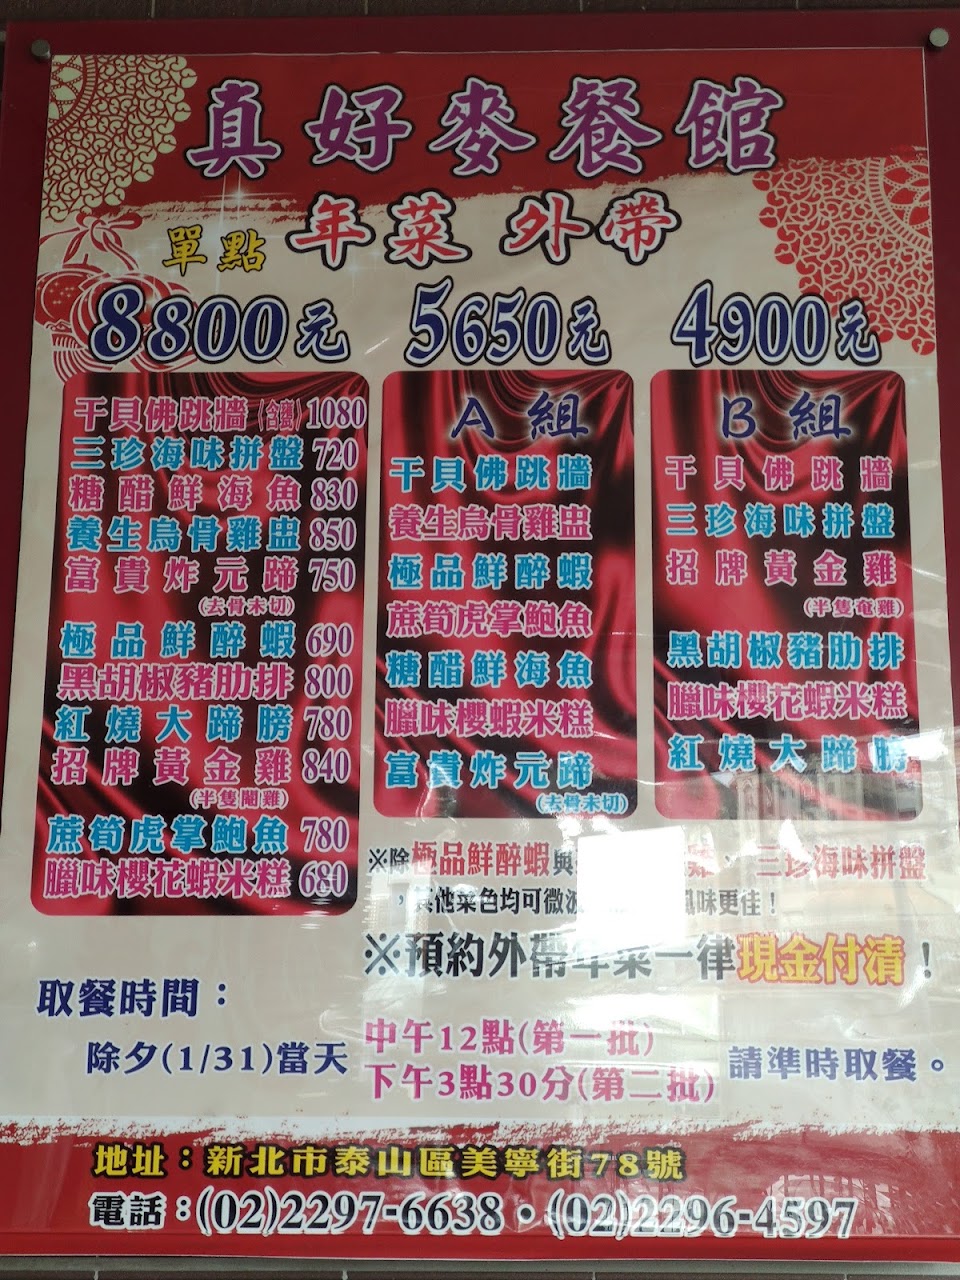 真好麥餐館
單點 年菜 外帶
8800元
干貝佛跳牆(含甕)1080
三珍海味拼盤 720
糖醋鮮海魚 830
養生烏骨雞盅 850
富貴炸元蹄 750
(去骨未切)
極品鮮醉蝦 690
黑胡椒豬肋排 800
紅燒大蹄膀 780
招牌黃金雞 840
(半隻閹雞)
蔗筍虎掌鮑魚 780
臘味櫻花蝦米糕 680
5650元
A組
干貝佛跳牆
養生烏骨雞盅
極品鮮醉蝦
蔗筍虎掌鮑魚
糖醋鮮海魚
臘味櫻蝦米糕
富貴炸元蹄
(去骨未切)
4900元
B組
干貝佛跳牆
三珍海味拼盤
招牌黃金雞
(半隻奄雞)
黑胡椒豬肋排
臘味櫻花蝦米糕
紅燒大蹄膀
※除極品鮮醉蝦與 、三珍海味拼盤
,其他菜色均可微波 風味更佳!
※預約外帶年菜一律現金付清!
取餐時間:
除夕(1/31)當天
中午12點(第一批)
下午3點30分(第二批)
請準時取餐。
地址:新北市泰山區美寧街78號
電話:(02)2297-6638・(02)2296-4597